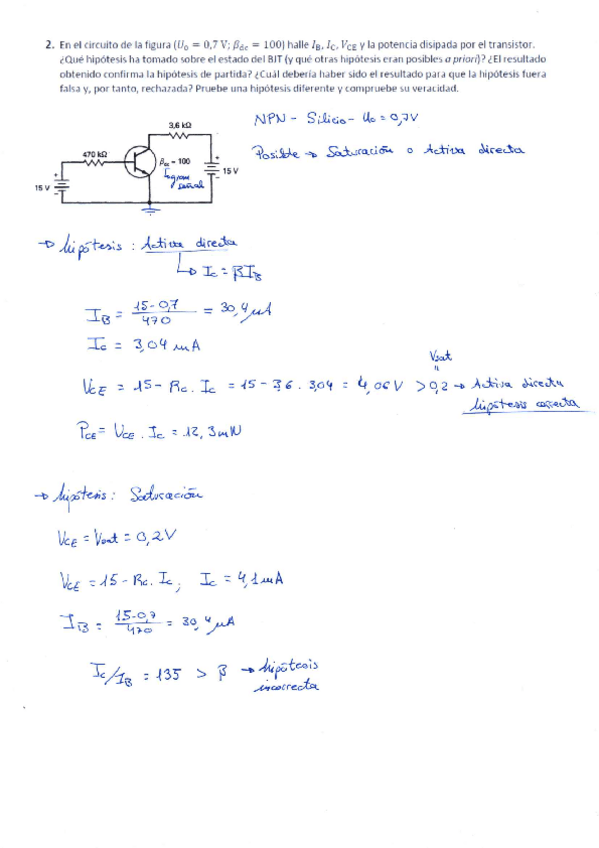 2. En el circuito de la figura (U₀ = 0,7 V; βdc = 100) halle IB, IC, VCE y la potencia disipada por el transistor.
¿Qué hipótesis ha tomado sobre el estado del BJT (y qué otras hipótesis eran posibles a priori)? ¿El resultado
obtenido confirma la hipótesis de partida? ¿Cuál debería haber sido el resultado para que la hipótesis fuera
falsa y, por tanto, rechazada? Pruebe una hipótesis diferente y compruebe su veracidad.
3,6 kΩ
470 kΩ
βdc = 100
15 V
15 V
NPN - Silicio - U₀ = 0,7V
Posible → Saturación o Activa directa
→ hipótesis: Activa directa
↳ Ic = βIB
IB = 15-0,7 / 470 = 30,4 μA
Ic = 3,04 mA
Vsat
"
VCE = 15 - Rc. Ic = 15 - 3,6 . 3,04 = 4,06 V > 0,2 → Activa directa
hipótesis correcta
PCE = VCE . Ic = 12,3 mW
→ hipótesis: Saturación
VCE = Vsat = 0,2V
VCE = 15 - Rc. Ic; Ic = 4,1 mA
IB = 15-0,7 / 470 = 30,4 μA
Ic/IB = 135 > β → hipótesis
incorrecta